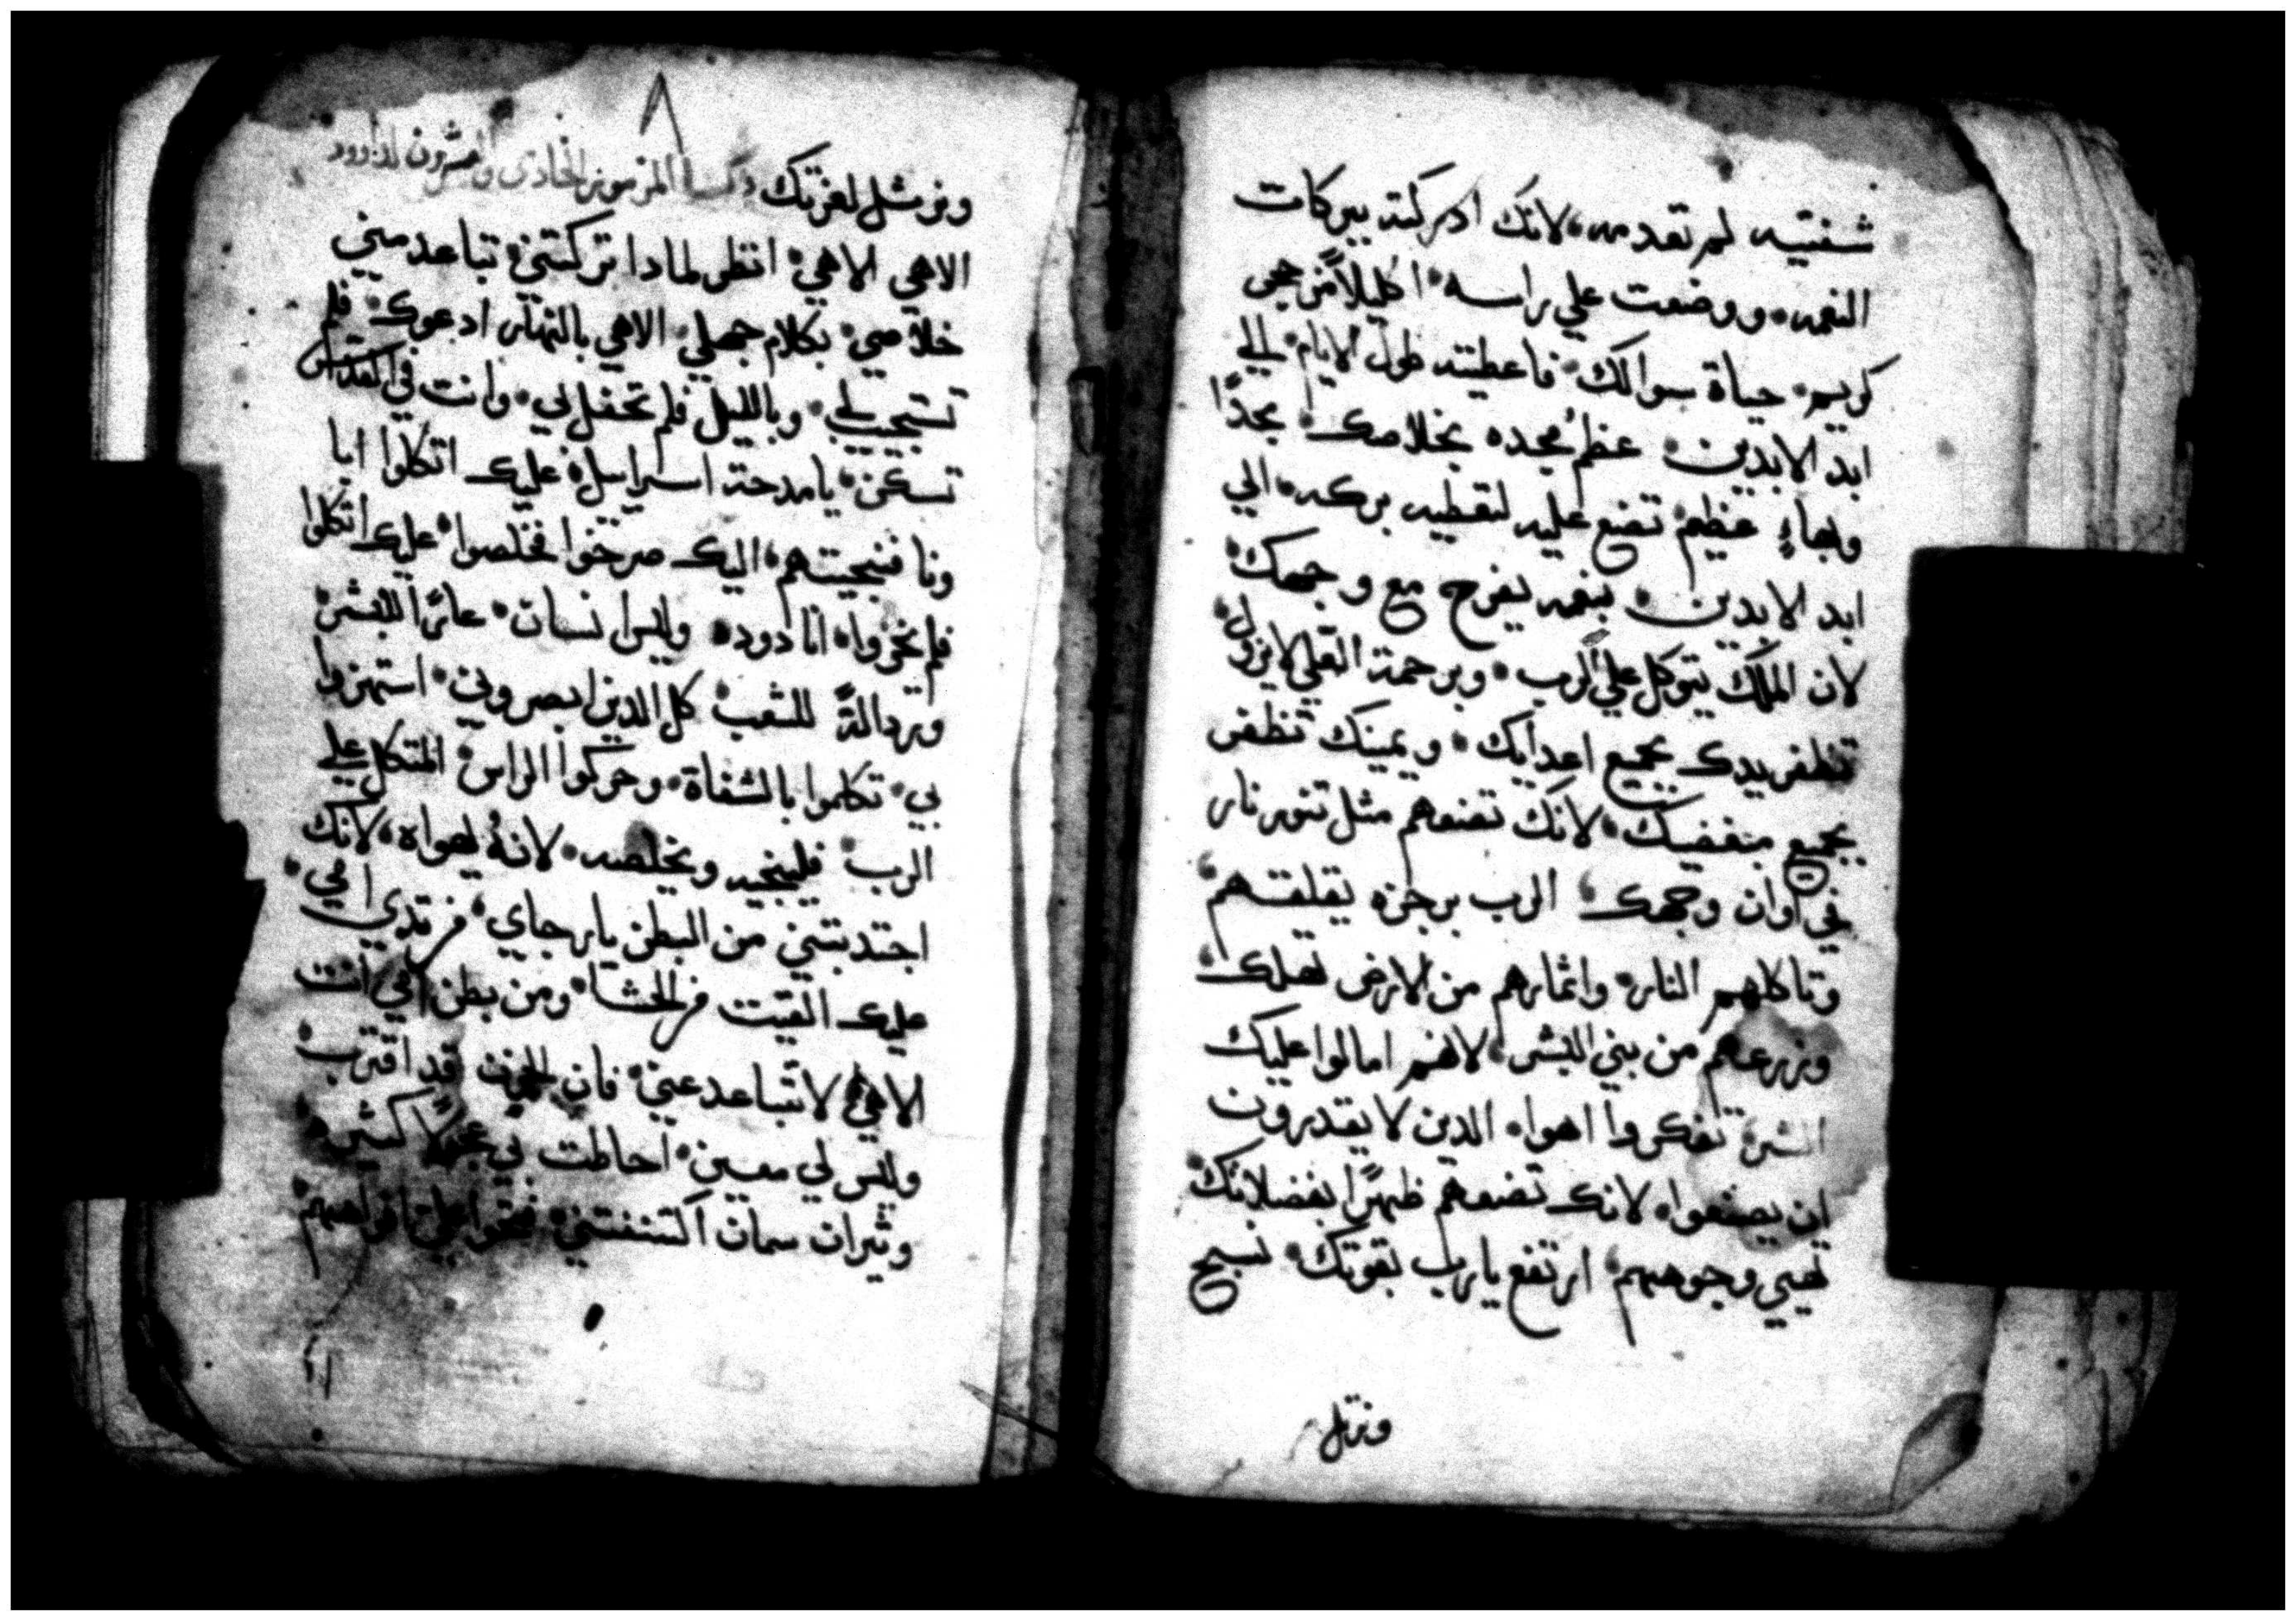 شفتيه لم تقدمه، لانك ادركته ببركات
النعمه، ووضعت علي راسه اكليلاً من حجر
كريم، حياة سوالك فاعطيته طول الايام الي
ابد الابدين، عظم مجده بخلاصك مجدًا
وبهاءٍ عظيم تضع عليه لتعطيه بركه الي
ابد الابدين، بنعمه يفرح مع وجهك
لان الملك يتوكل علي الرب، وبرحمة العلي لا يزول
تظفر يدك بجميع اعدايك، ويمينك تظفر
بجميع مبغضيك، لانك تضعهم مثل تنور نار
في اوان وجهك، الرب برجزه يقلقهم
وتاكلهم النار، واثمارهم من الارض تهلك
وزرعهم من بني البشر، لانهم امالوا عليك
الشر، تفكروا اهواء الدين لا يقدرون
ان يصنعوا، لانك تضعهم ظهرًا بفضلاتك
تهيي وجوههم، ارتفع يا رب بقوتك، نسبح
ونرتل
ونرتل لعزتك المزمور الحادي والعشرون لداوود
الاهي الاهي انظر لمادا تركتني، تباعد مني
خلاصي، بكلام جهلي، الاهي بالنهار ادعوك فلم
تستجيب لي، وبالليل فلم تحفل بي، وانت في القديس
تسكن، يا مدحة اسراييل، عليك اتكلوا ابا
ونا فنجيتهم، اليك صرخوا فخلصوا، عليك اتكلوا
فلم يخزوا، انا دوده وليس انسان، عارًا للبشر
وردالةً للشعب، كل الدين ابصروني، استهزوا
بي، تكلموا بالشفاة، وحركوا الراس، المتكل علي
الرب فلينجيه ويخلصه، لانهُ يهواه، لانك
اجتدبتني من البطن يا رجاي من تدي امي،
عليك القيت من الحشا، ومن بطن امي انت
الاهي لا تتباعد عني، فان الحزن قد اقترب
وليس لي معين، احاطت بي عجولًا كثيره
وثيران سمان اكتنفتني، فتحوا علي افواههم